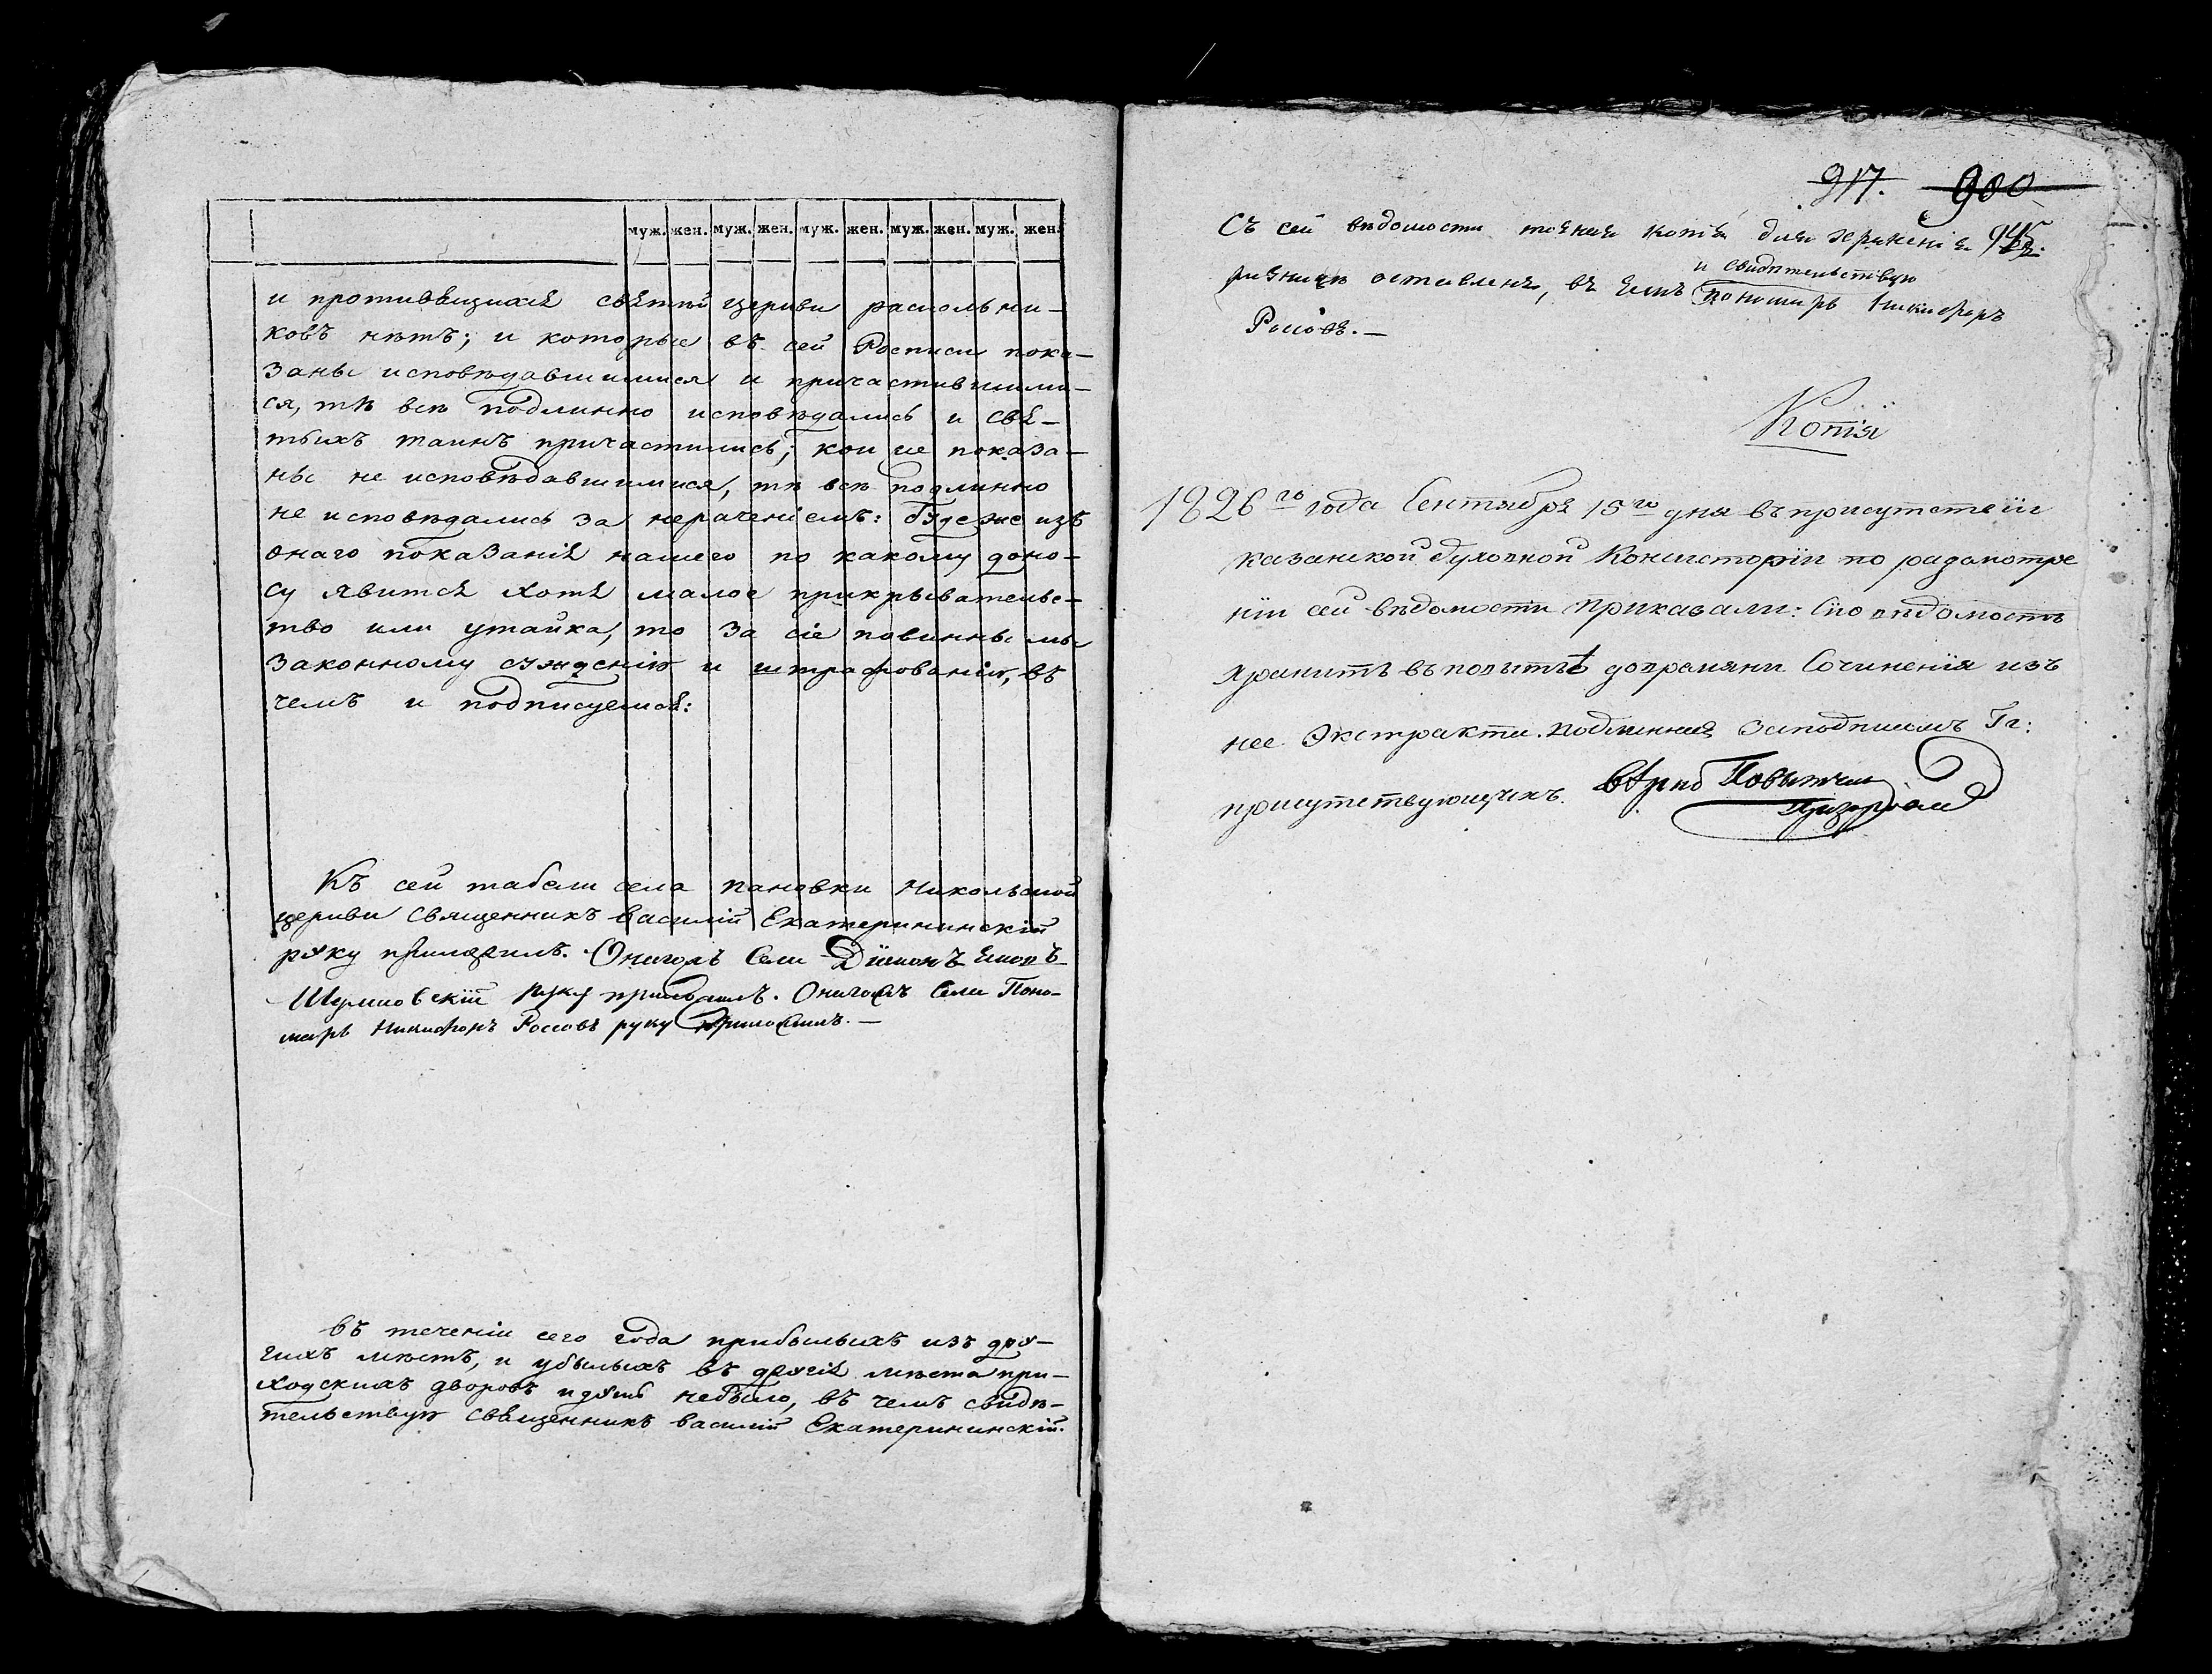 муж. жен. муж. жен. муж. жен. муж. жен. муж. жен.
и противѧщихсѧ свѧтѣй церкви раскольни-
ковъ нѣтъ; и которые въ сей Росписи пока-
заны исповѣдавшимися и причастившими-
ся, тѣ всѣ подлинно исповѣдались и свѧ-
тыхъ таинъ причастились; кои не показа-
ны не исповѣдавшимися, тѣ всѣ подлинно
не исповѣдались за нераченіемъ: буде же изъ
онаго показаніѧ нашего по какому доно-
су явитсѧ хотѧ малое прикрыватель-
ство или утайка, то за сіе повинны мы
законному сужденію и штрафованію, въ
чемъ и подписуемсѧ:
Къ сей табели села Пановки Никольской
церкви священникъ Василій Екатерининскій
руку приложилъ. Онагожъ Села Діаконъ
руку приложилъ. Онагожъ Села Поно-
марь Никифоръ Россовъ руку приложилъ. —
Въ теченіи сего года прибылыхъ изъ дру-
гихъ мѣстъ, и убылыхъ въ другіѧ мѣста при-
ходскихъ дворовъ и душъ небыло, въ чемъ свидѣ-
тельствую свѧщенникъ Василій Екатерининскій.
917. 900
Съ сей вѣдомости точная копія для храненія 945
оставлена, въ чемъ и свидѣтельствую
пономарь Никифоръ
Россовъ. —
Копія
1826го года Сентября 15го дня въ присутствіи
Казанской Духовной Консисторіи по разсмотре
ніи сей вѣдомости приказали: Сію вѣдомость
хранить въ повытьѣ до времяни Сочиненія изъ
нее Экстракта. Подлинная заподписомъ Гг:
присутствующихъ. Вѣрно Повытчик